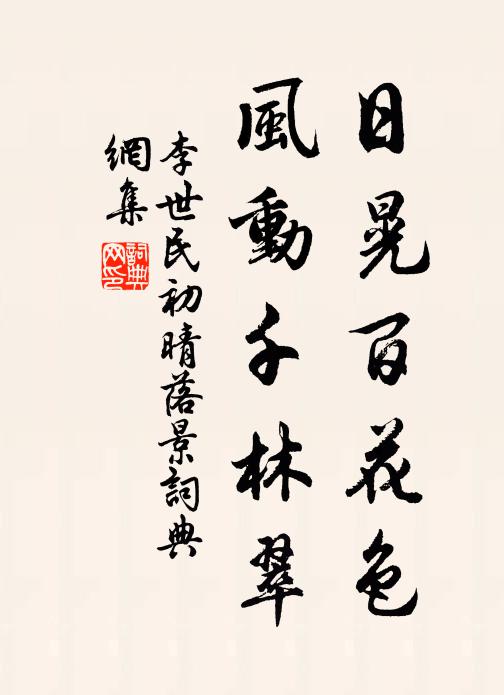 日晃百花色
風動千林翠
李世民初晴落景詞典
網集
詞典
网印